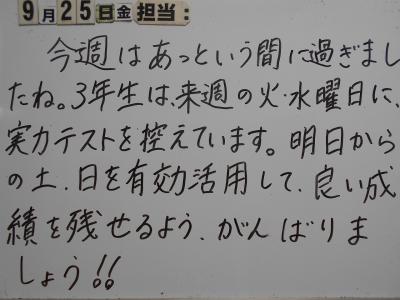 9月25日金担当:
今週はあっという間に過ぎまし
たね。3年生は、来週の火・水曜日に、
実力テストを控えています。明日から
の土、日を有効活用して、良い成
績を残せるよう、がんばりま
しょう!!